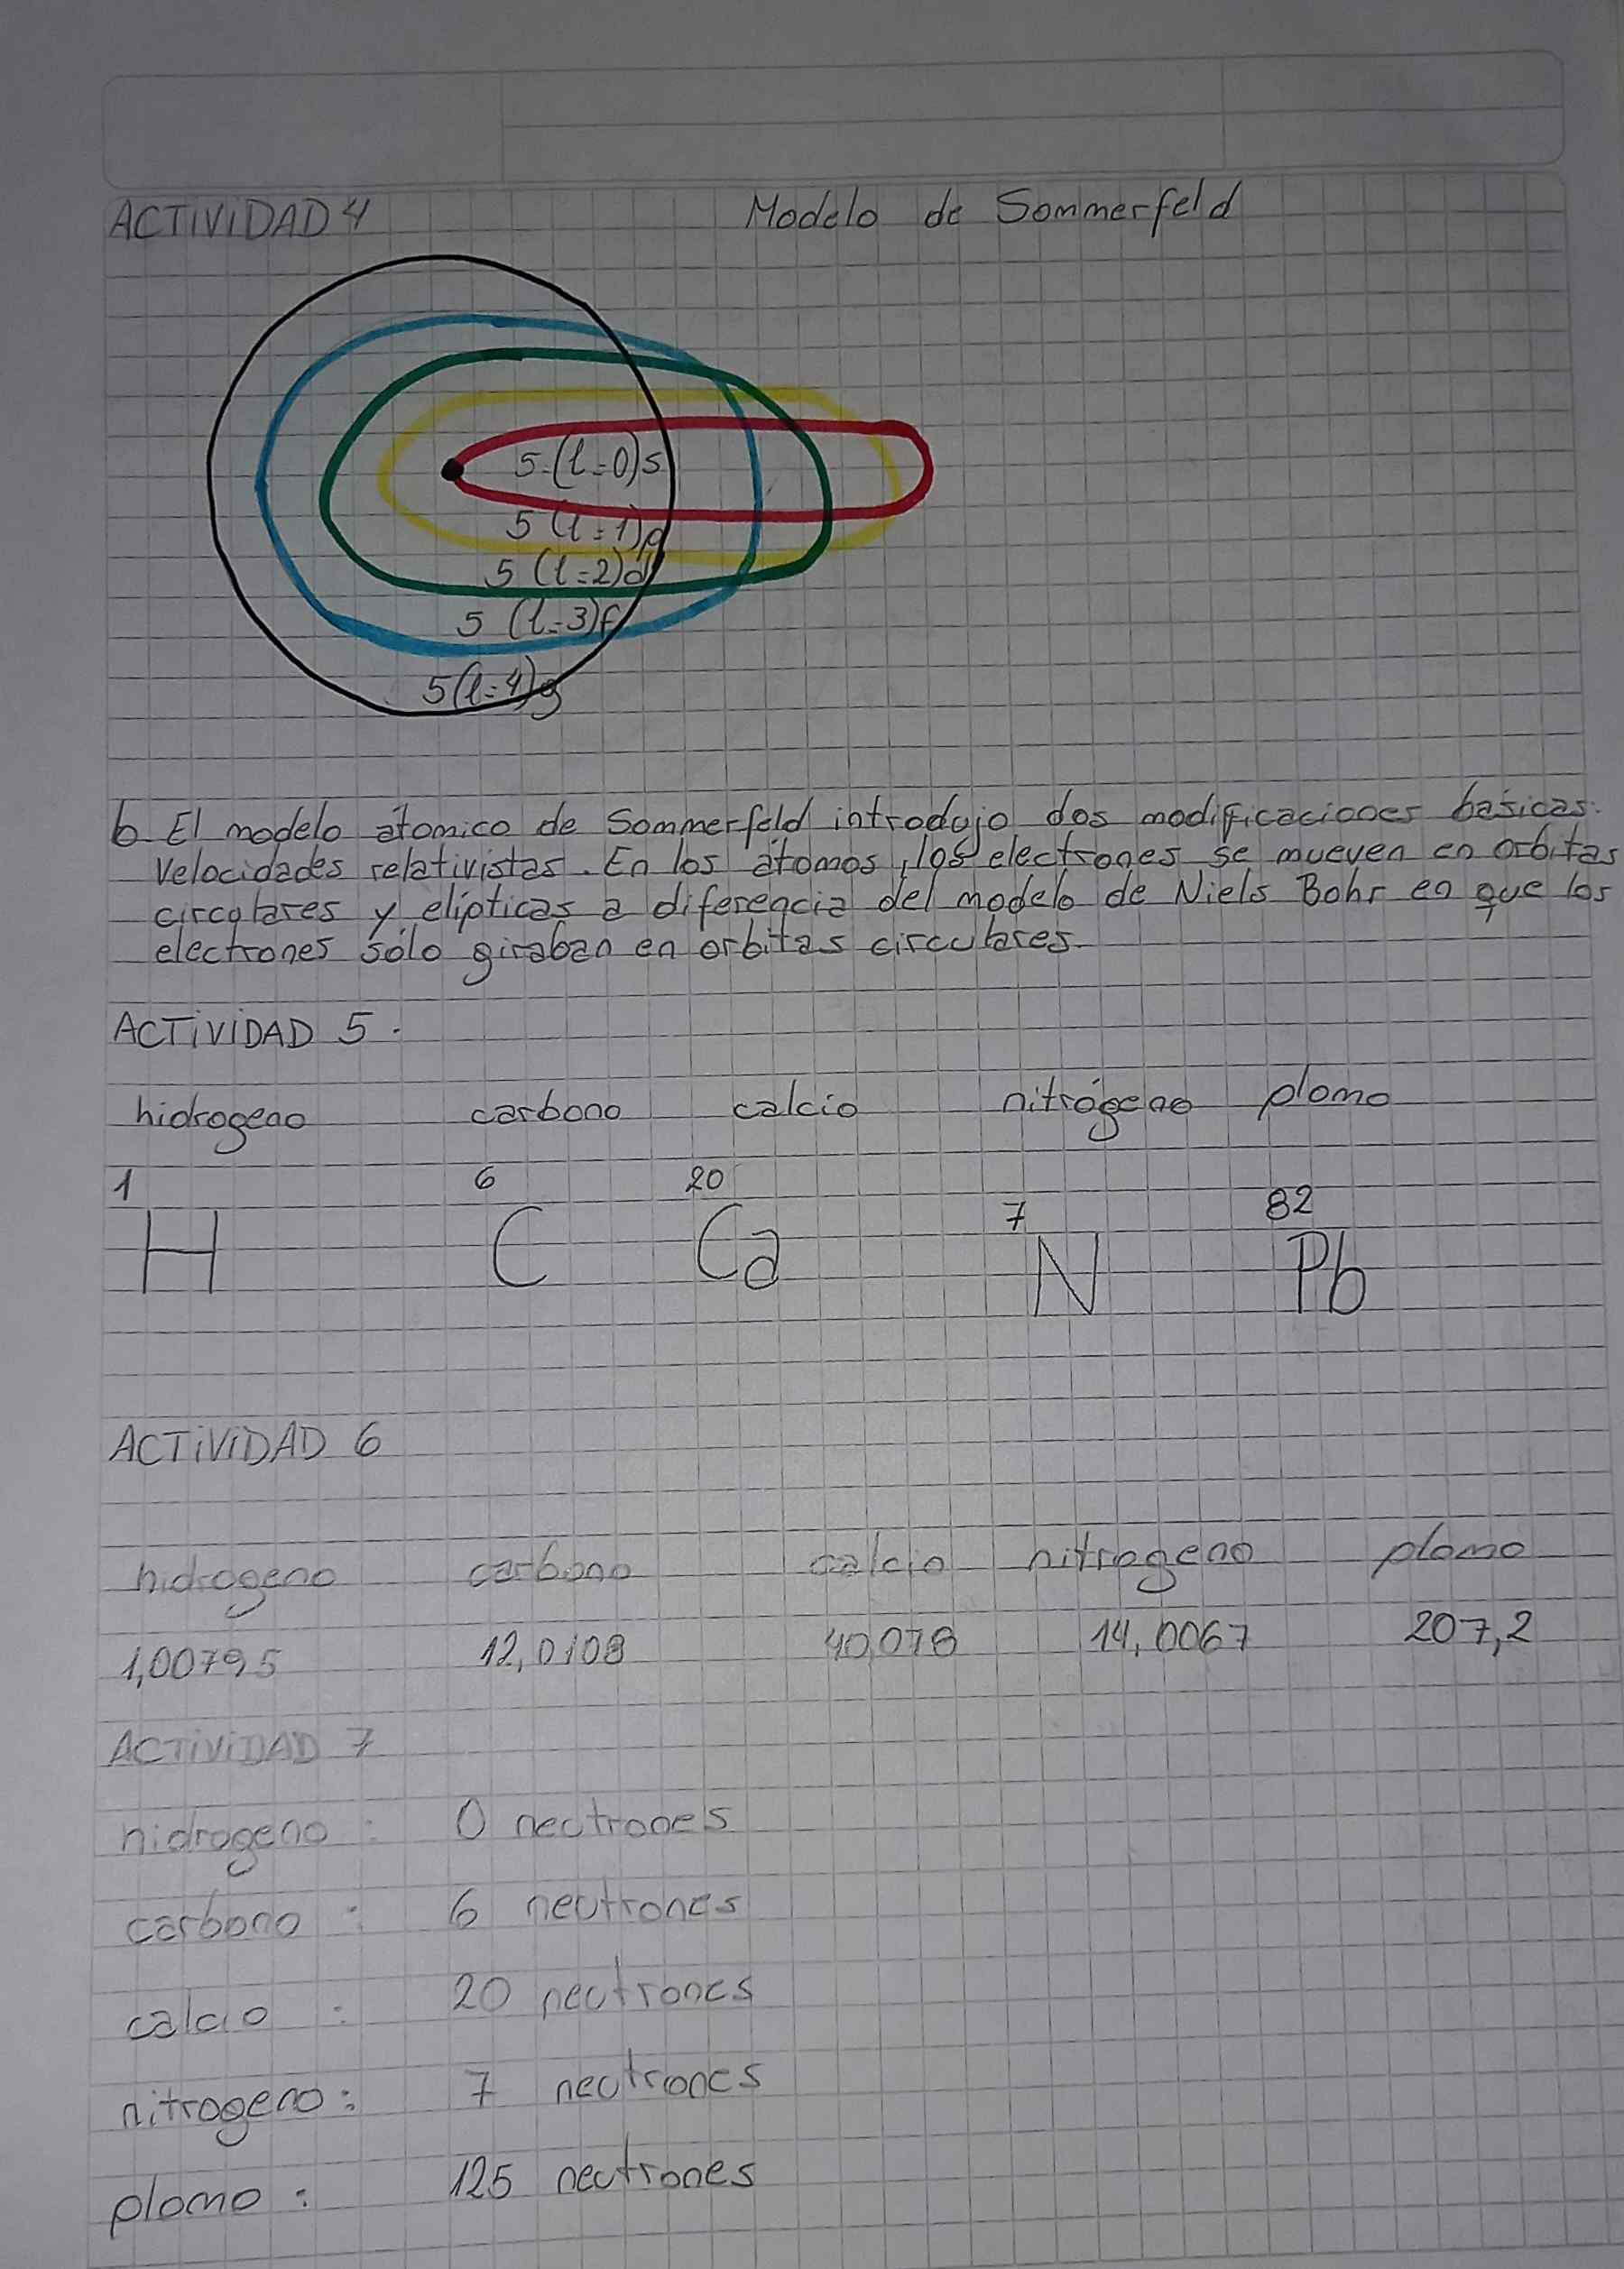 ACTIVIDAD 4 Modelo de Sommerfeld
5-(l=0)s
5 (l=1)p
5 (l=2)d
5 (l=3)f
5(l=4)g
b- El modelo átomico de Sommerfeld introdujo dos modificaciones básicas:
Velocidades relativistas. En los átomos, los electrones se mueven en orbitas
circulares y elípticas a diferencia del modelo de Niels Bohr en que los
electrones sólo giraban en orbitas circulares.
ACTIVIDAD 5.
hidrogeno carbono calcio nitrógeno plomo
1 6 20 7 82
H C Ca N Pb
ACTIVIDAD 6
hidrogeno carbono calcio nitrogeno plomo
1,00795 12,0108 40,078 14,0067 207,2
ACTIVIDAD 7
hidrogeno : 0 neutrones
carbono : 6 neutrones
calcio : 20 neutrones
nitrogeno : 7 neutrones
plomo : 125 neutrones